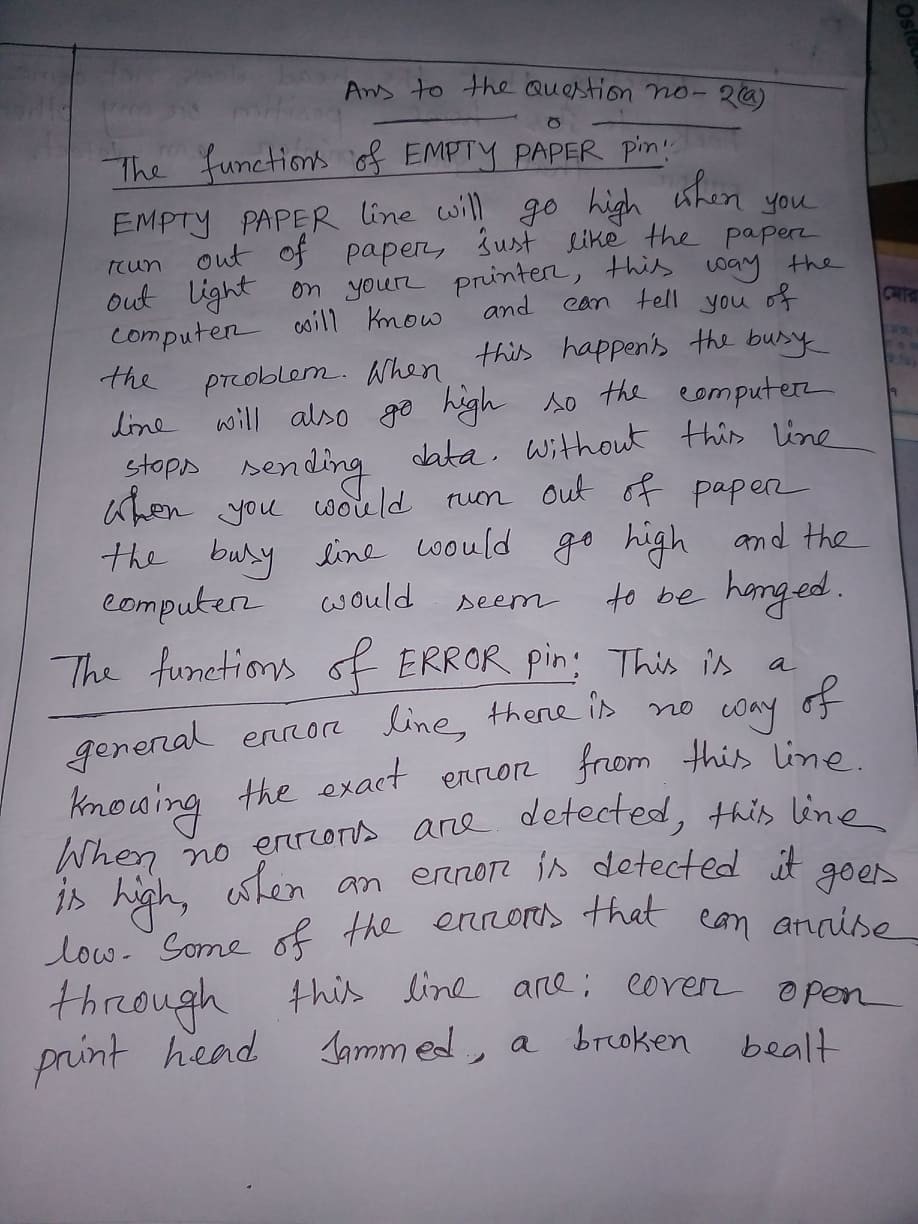 Ans to the Question no- 2(a)
The functions of EMPTY PAPER pin:
EMPTY PAPER line will go high when you
run out of paper, just like the paper
out light on your printer, this way the
computer will know and can tell you of
the problem. When this happen's the busy
line will also go high so the computer
stops sending data. Without this line
when you would run out of paper
the busy line would go high and the
computer would seem to be hanged.
The functions of ERROR pin: This is a
general error line, there is no way of
knowing the exact error from this line.
When no errors are detected, this line
is high, when an error is detected it goes
low. Some of the errors that can arrise
through this line are: cover open
print head Jammed, a broken bealt